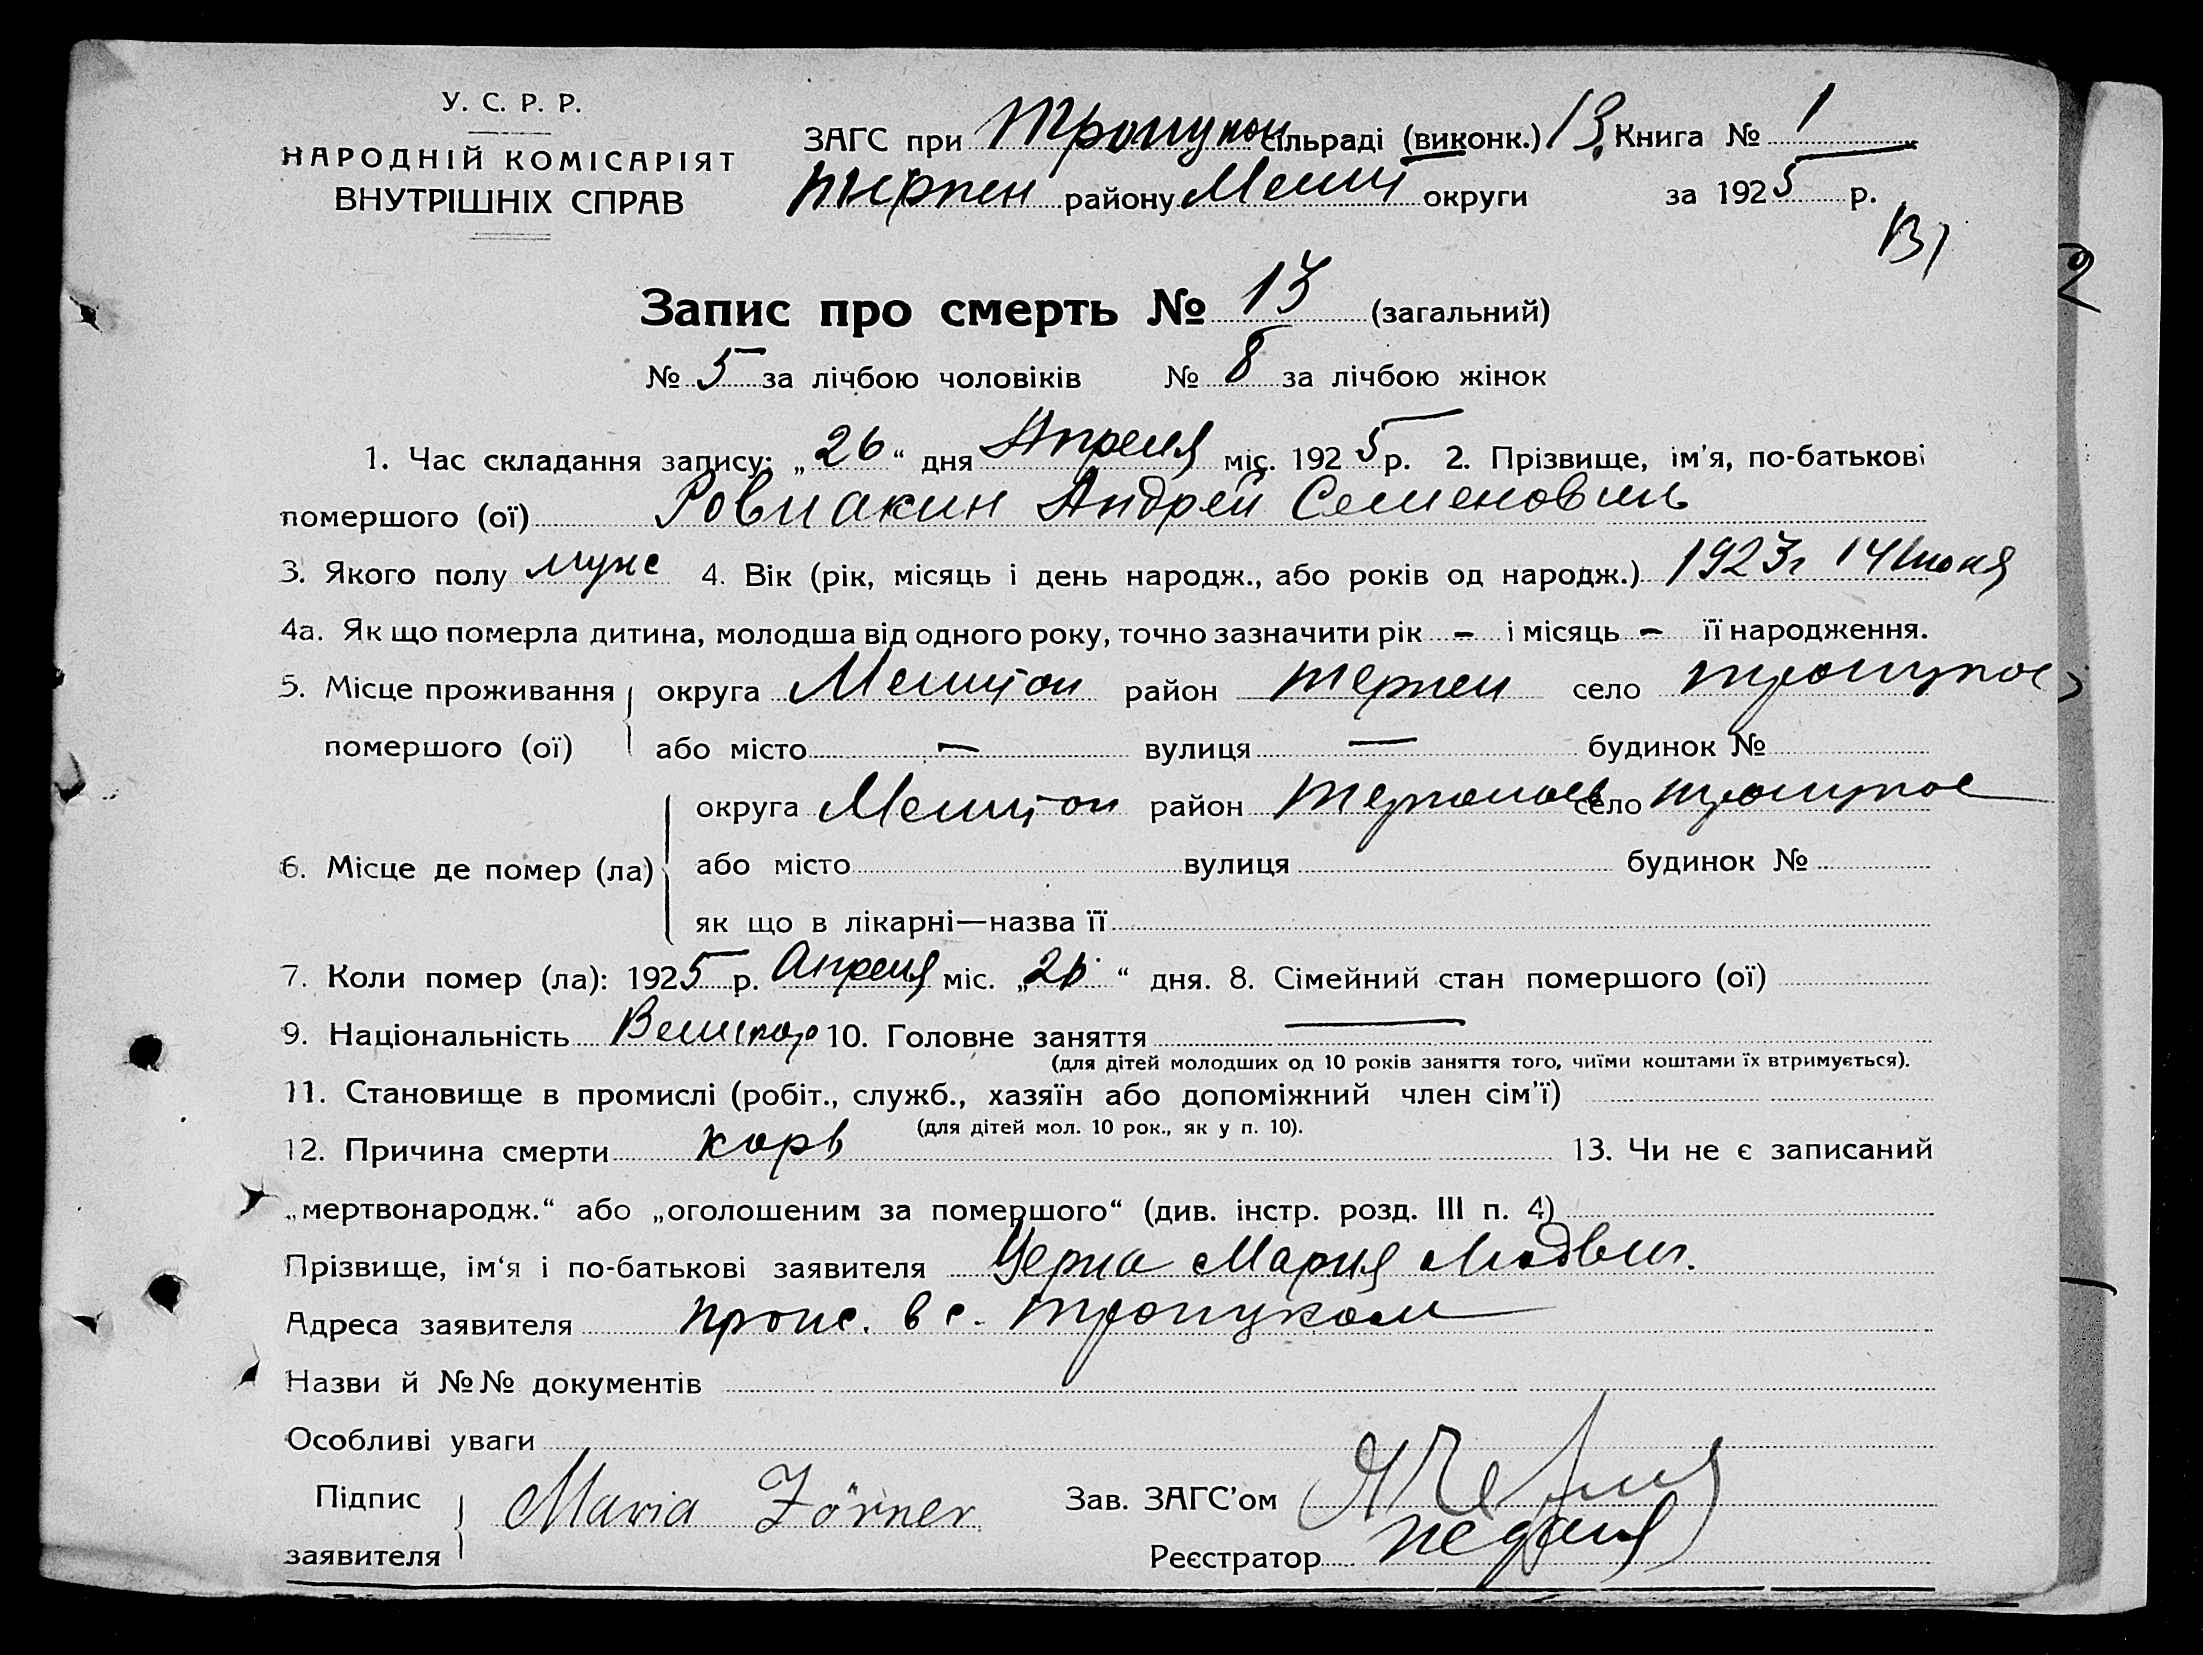 У. С. Р. Р.
НАРОДНІЙ КОМІСАРІЯТ
ВНУТРІШНІХ СПРАВ
ЗАГС при сільраді (виконк.) 13. Книга № 1
району округи за 1925 р.
131
2
Запис про смерть № 13 (загальний)
№ 5 за лічбою чоловіків № 8 за лічбою жінок
1. Час складання запису: „26“ дня Апреля міс. 1925 р. 2. Прізвище, ім'я, по-батькові
помершого (ої) Андрей Семенович
3. Якого полу муж 4. Вік (рік, місяць і день народж., або років од народж.) 1923г 14 Июня
4а. Як що померла дитина, молодша від одного року, точно зазначити рік – і місяць – її народження.
5. Місце проживання округа район село
помершого (ої) або місто — вулиця — будинок №
округа район село
6. Місце де помер (ла) або місто вулиця будинок №
як що в лікарні—назва її
7. Коли помер (ла): 1925 р. Апреля міс. „ “ дня. 8. Сімейний стан помершого (ої)
9. Національність 10. Головне заняття —
(для дітей молодших од 10 років заняття того, чиїми коштами їх втримується).
11. Становище в промислі (робіт., служб., хазяїн або допоміжний член сім'ї)
(для дітей мол. 10 рок., як у п. 10).
12. Причина смерти корь 13. Чи не є записаний
„мертвонародж.“ або „оголошеним за помершого“ (див. інстр. розд. III п. 4)
Прізвище, ім'я і по-батькові заявителя Мария
Адреса заявителя в с.
Назви й №№ документів
Особливі уваги
Підпис
заявителя Maria Zörner
Зав. ЗАГС'ом
Реєстратор